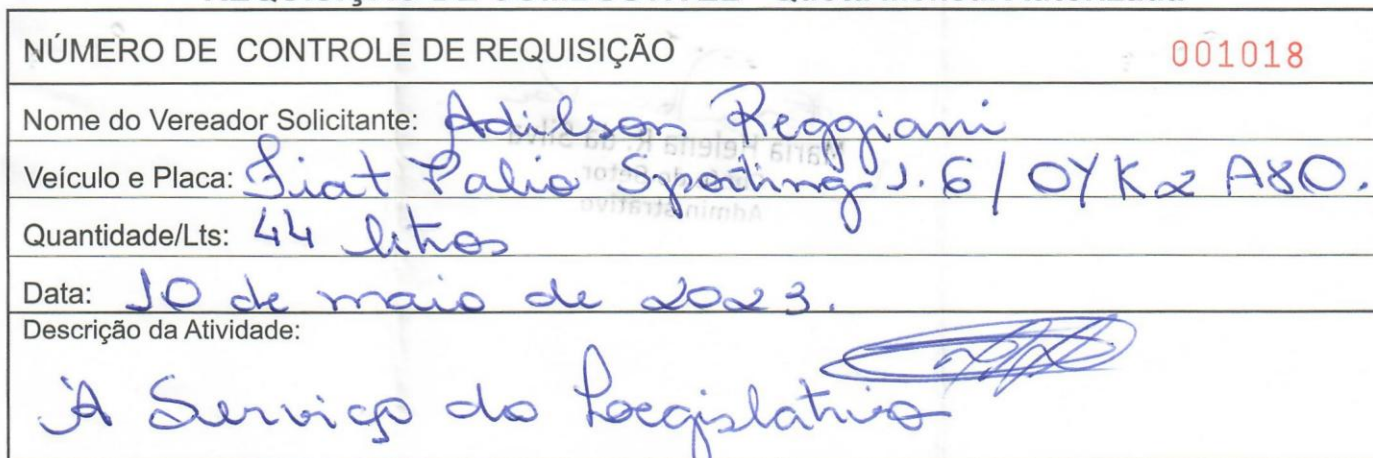 NÚMERO DE CONTROLE DE REQUISIÇÃO 001018
Nome do Vereador Solicitante: Adilson Reggiani
Veículo e Placa: Fiat Palio Sporting 1.6 / OYK2A80.
Quantidade/Lts: 44 litros
Data: 10 de maio de 2023.
Descrição da Atividade:
À Serviço do Legislativo